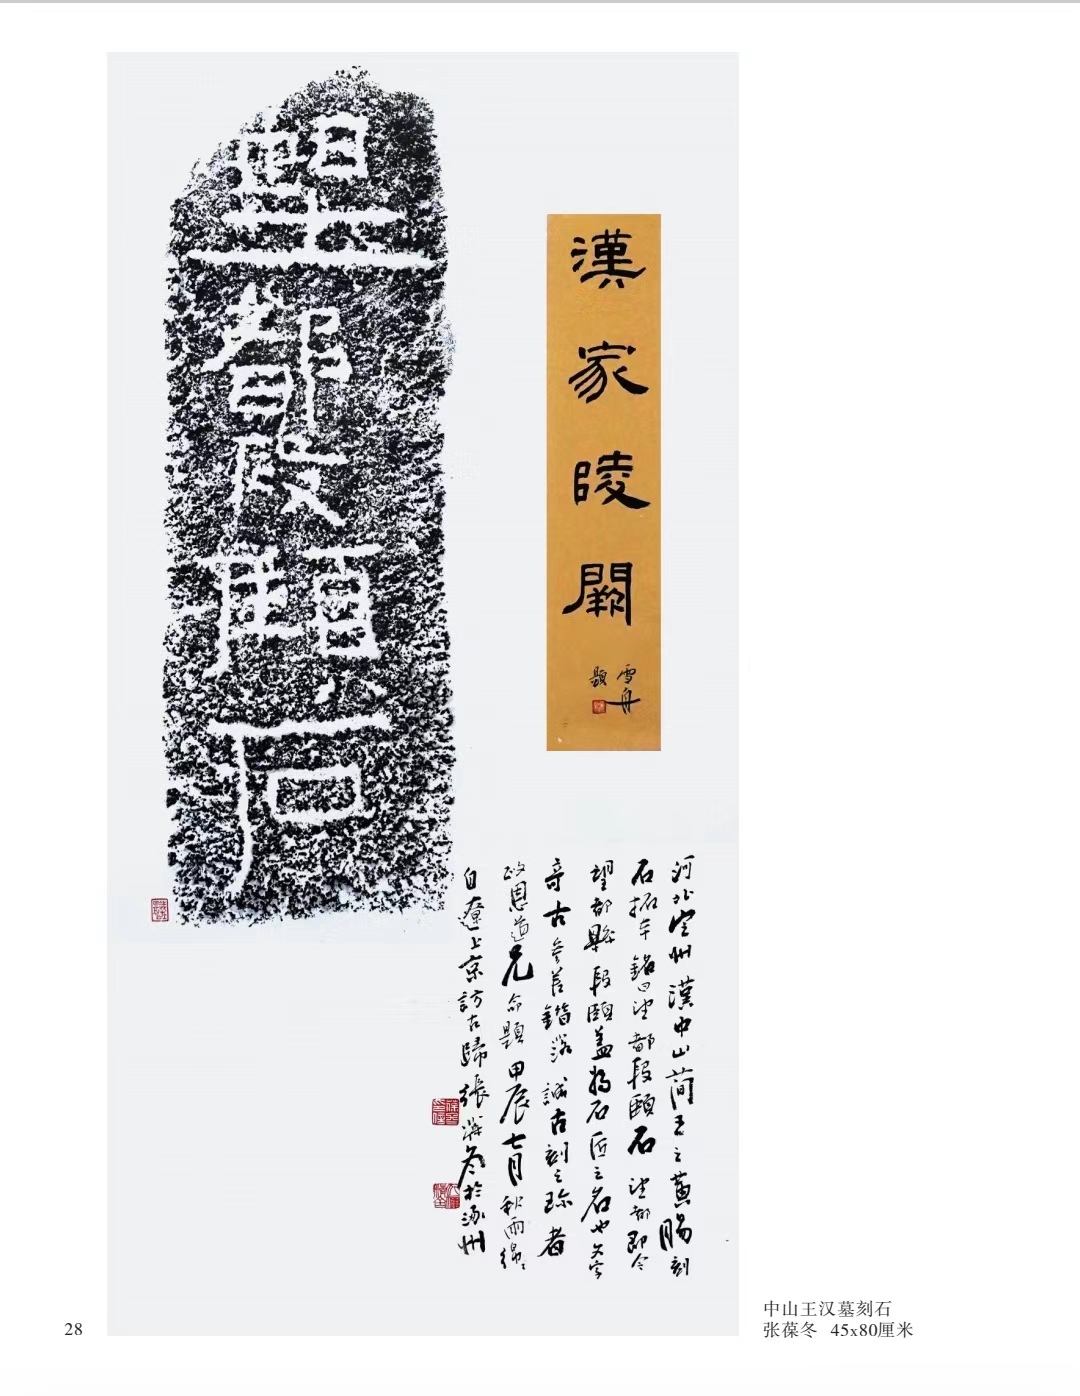 望都段頤石
漢家陵闕
雪舟
題
河北定州漢中山簡王之黃腸刻
石拓本銘曰望都段頤石望都即今
望都縣段頤蓋為石匠之名也文字
奇古參差錯落誠古刻之珍者
政恩道兄命題甲辰七月秋雨後
自遼上京訪古歸張葆冬於涿州
中山王汉墓刻石
张葆冬 45x80厘米
28